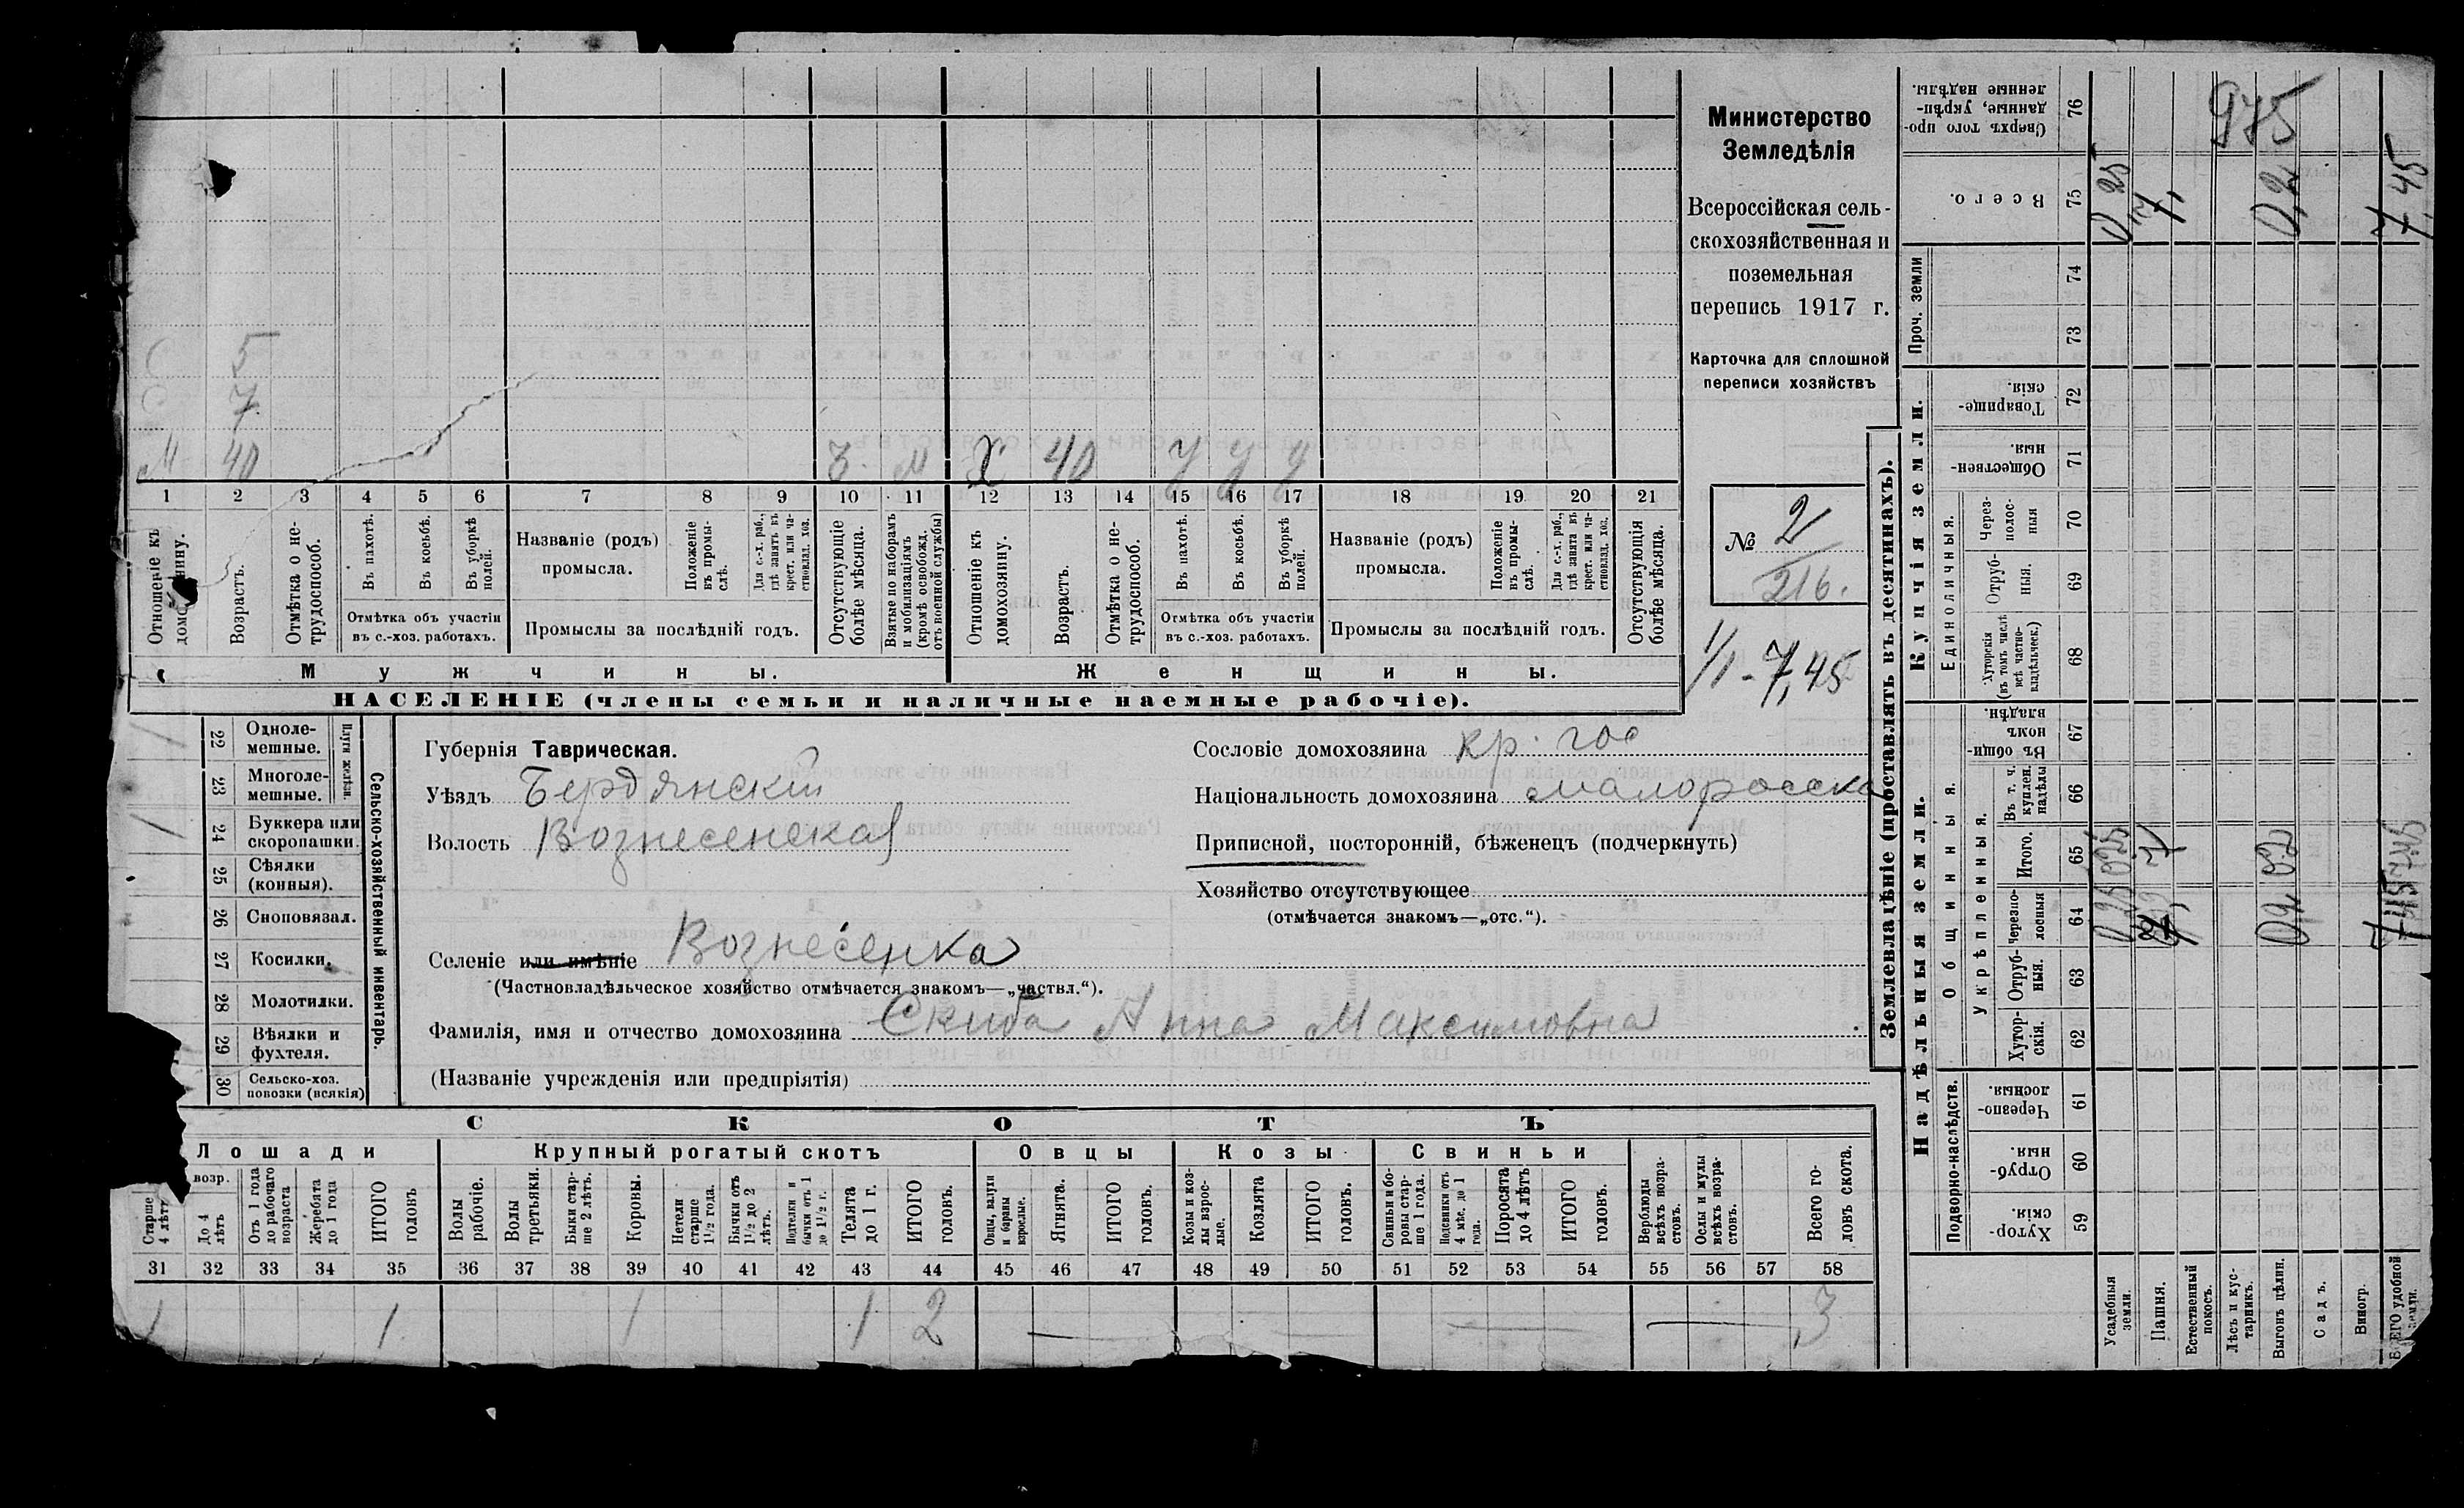 Министерство
Земледѣлія
Всероссійская сель-
скохозяйственная и
поземельная
перепись 1917 г.
Карточка для сплошной
переписи хозяйствъ
№ 2
216.
1/1 - 7,45
5
7
М 40 М Х 40 у у у
1 2 3 4 5 6 7 8 9 10 11 12 13 14 15 16 17 18 19 20 21
Отношеніе къ
Возрастъ.
Отмѣтка о не-
трудоспособ.
Въ пахотѣ.
Въ косьбѣ.
Въ уборкѣ
полей.
Отмѣтка объ участіи
въ с.-хоз. работахъ.
Названіе (родъ)
промысла.
Положеніе
въ промы-
слѣ.
Для с.-х. раб.,
гдѣ занятъ въ
крест. или ча-
стновлад. хоз.
Промыслы за послѣдній годъ.
Отсутствующіе
болѣе мѣсяца.
Взятые по наборамъ
и мобилизаціямъ
(кромѣ освобожд.
отъ военной службы)
Отношеніе къ
домохозяину.
Возрастъ.
Отмѣтка о не-
трудоспособ.
Въ пахотѣ.
Въ косьбѣ.
Въ уборкѣ
полей.
Отмѣтка объ участіи
въ с.-хоз. работахъ.
Названіе (родъ)
промысла.
Положеніе
въ промы-
слѣ.
Для с.-х. раб.,
гдѣ занята въ
крест. или ча-
стновлад. хоз.
Промыслы за послѣдній годъ.
Отсутствующія
болѣе мѣсяца.
Мужчины.
Женщины.
НАСЕЛЕНІЕ (члены семьи и наличные наемные рабочіе).
22 Одноле-
мешные.
23 Многоле-
мешные.
Плуги желѣзн.
24 Буккера или
скоропашки.
25 Сѣялки
(конныя).
26 Сноповязал.
27 Косилки.
28 Молотилки.
29 Вѣялки и
фухтеля.
30 Сельско-хоз.
повозки (всякія)
Сельско-хозяйственный инвентарь.
Губернія Таврическая.
Уѣздъ Бердянскій
Волость Вознесенская
Селеніе или имѣніе Вознесенка
(Частновладѣльческое хозяйство отмѣчается знакомъ—„частвл.“).
Фамилія, имя и отчество домохозяина Скиба Анна Максимовна
(Названіе учрежденія или предпріятія)
Сословіе домохозяина кр. гос
Національность домохозяина малоросска
Приписной, посторонній, бѣженецъ (подчеркнуть)
Хозяйство отсутствующее
(отмѣчается знакомъ—„отс.“).
СКОТЪ
Лошади
Крупный рогатый скотъ
Овцы
Козы
Свиньи
возр.
Старше
4 лѣтъ
До 4
лѣтъ
Отъ 1 года
до рабочаго
возраста
Жеребята
до 1 года
ИТОГО
головъ
Волы
рабочіе.
Волы
третьяки.
Быки стар-
ше 2 лѣтъ.
Коровы.
Нетели
старше
1½ года.
Бычки отъ
1½ до 2
лѣтъ.
Подтелки и
бычки отъ 1
до 1½ г.
Телята
до 1 г.
ИТОГО
головъ.
Овцы, валухи
и бараны
взрослые.
Ягнята.
ИТОГО
головъ.
Козы и коз-
лы взрос-
лые.
Козлята
ИТОГО
головъ.
Свиньи и бо-
ровы стар-
ше 1 года.
Подсвинки отъ
4 мѣс. до 1
года.
Поросята
до 4 лѣтъ
ИТОГО
головъ.
Верблюды
всѣхъ возра-
стовъ.
Ослы и мулы
всѣхъ возра-
стовъ.
Всего го-
ловъ скота.
31 32 33 34 35 36 37 38 39 40 41 42 43 44 45 46 47 48 49 50 51 52 53 54 55 56 57 58
1 1 1 1 2 3
Землевладѣніе (проставлять въ десятинахъ).
Надѣльныя земли.
Купчія земли.
Проч. земли
Подворно-наслѣдств.
Общинныя.
Укрѣпленныя.
Единоличныя.
Сверхъ того про-
данные, укрѣп-
ленные надѣлы.
76
Всего.
75
74
73
Товарище-
скія.
72
Обществен-
ныя.
71
Через-
полос-
ныя
70
Отруб-
ныя.
69
Хуторскія
(въ томъ числѣ
всѣ частно-
владѣльческ.)
68
Въ общи-
номъ
владѣн.
67
Въ т. ч.
куплен.
надѣлы
66
Итого.
65
Черезпо-
лосныя
64
Отруб-
ныя.
63
Хутор-
скія.
62
Черезпо-
лосныя
61
Отруб-
ныя.
60
Хутор-
скія.
59
Усадебныя
земли.
Пашня.
Естественный
покосъ.
Лѣсъ и кус-
тарникъ.
Выгонъ цѣлин.
Садъ.
Виногр.
ВСЕГО удобной
земли.
975
0,25
7,
0,2
7,45
0,25
7
0,2
7,45